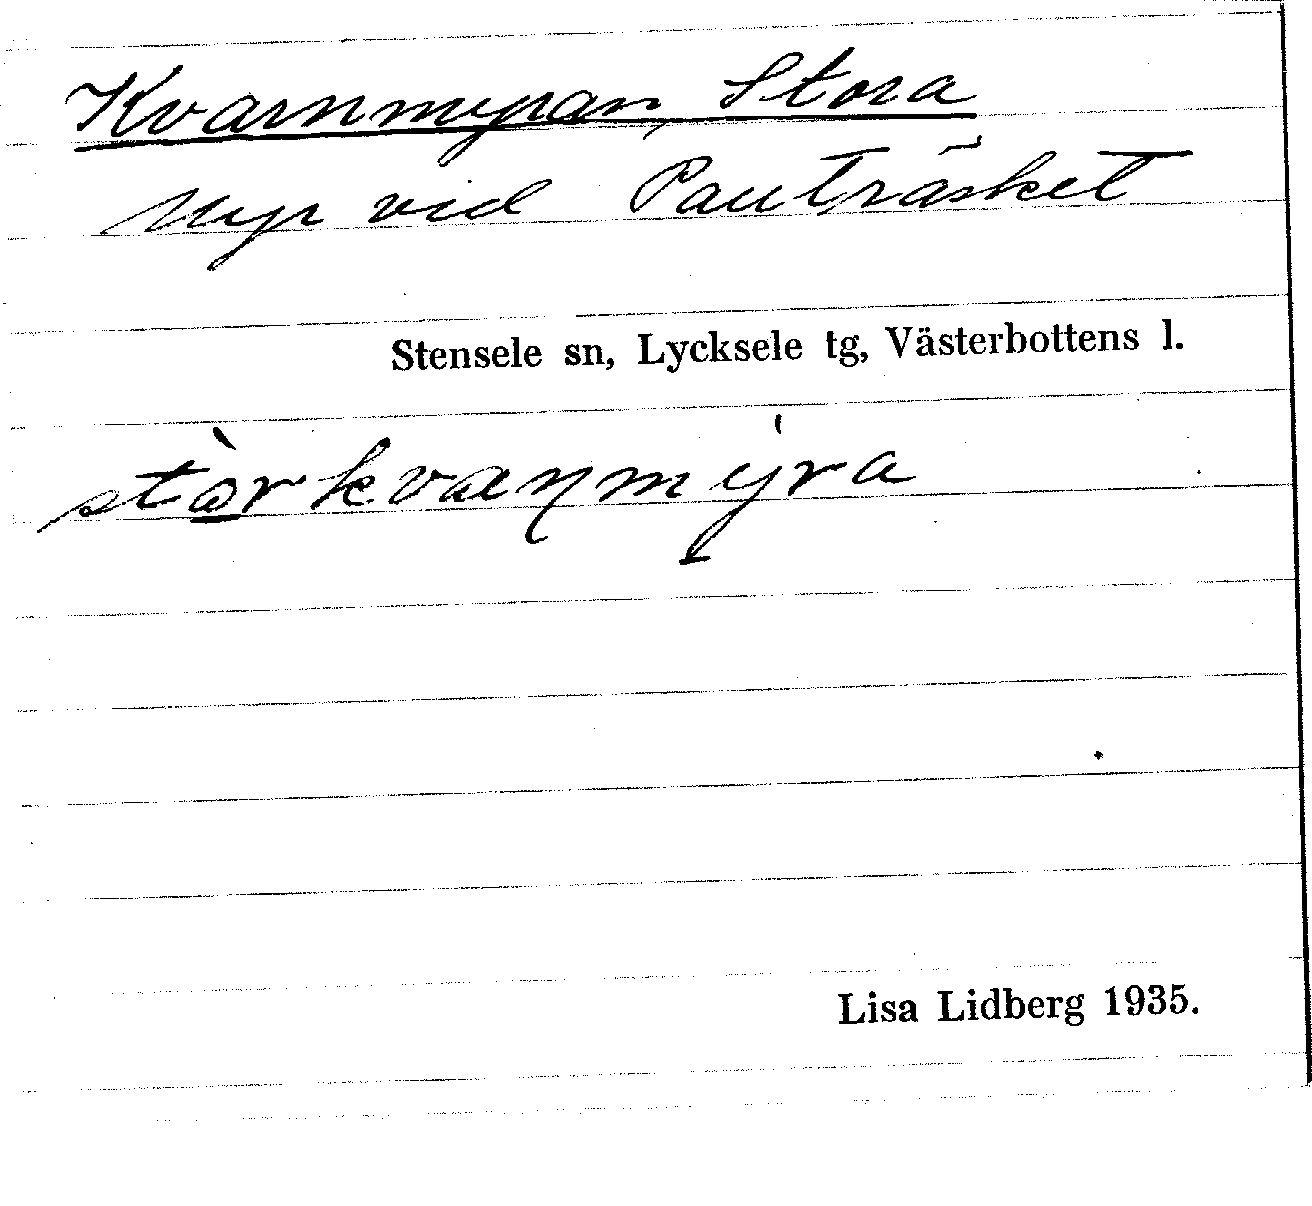 Kvarnmyran, Stora
Myr vid Pauträsket
Stensele sn, Lycksele tg, Västerbottens l.
stòrkvaɳmýra
Lisa Lidberg 1935.